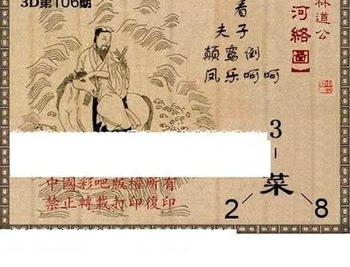 3D第106期
看
夫子
颠鸾倒
凤乐呵呵
林道公
河络圖
3
菜
2
8
中國彩吧版權所有
禁止轉載打印復印